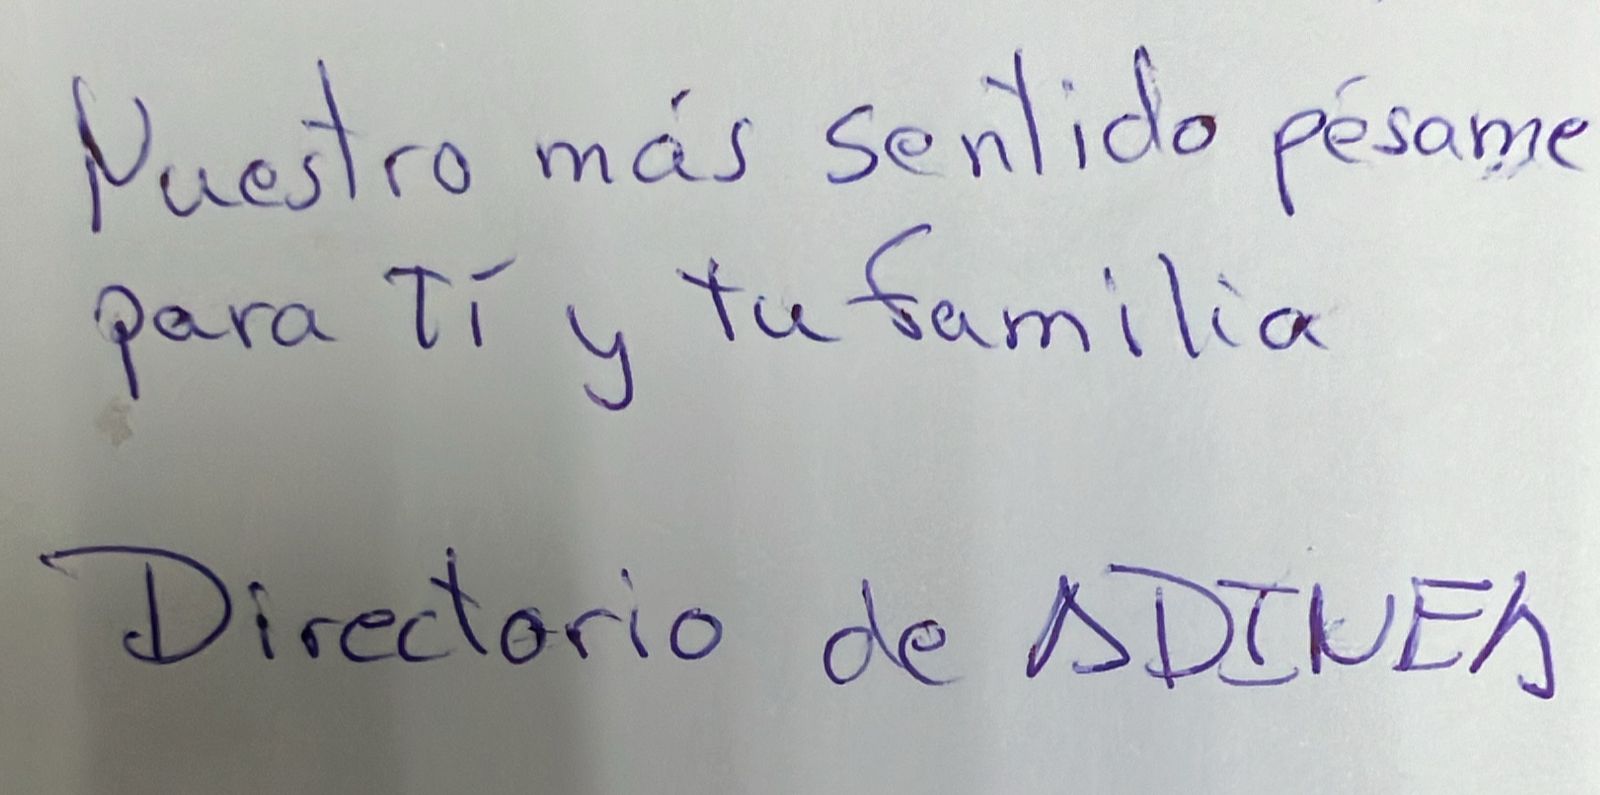 Nuestro más sentido pésame
para Tí y tu familia
Directorio de ADINEA